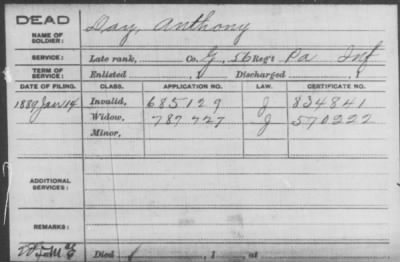 DEAD
NAME OF SOLDIER: Day, Anthony
SERVICE: Late rank, Co. G, 56 Reg't Pa Inf
TERM OF SERVICE: Enlisted , Discharged , 1
DATE OF FILING. CLASS. APPLICATION NO. LAW. CERTIFICATE NO.
1889 Jan 14 Invalid, 685129 J 834841
Widow, 787727 J 570222
Minor,
ADDITIONAL SERVICES:
REMARKS:
Died , 1 , at